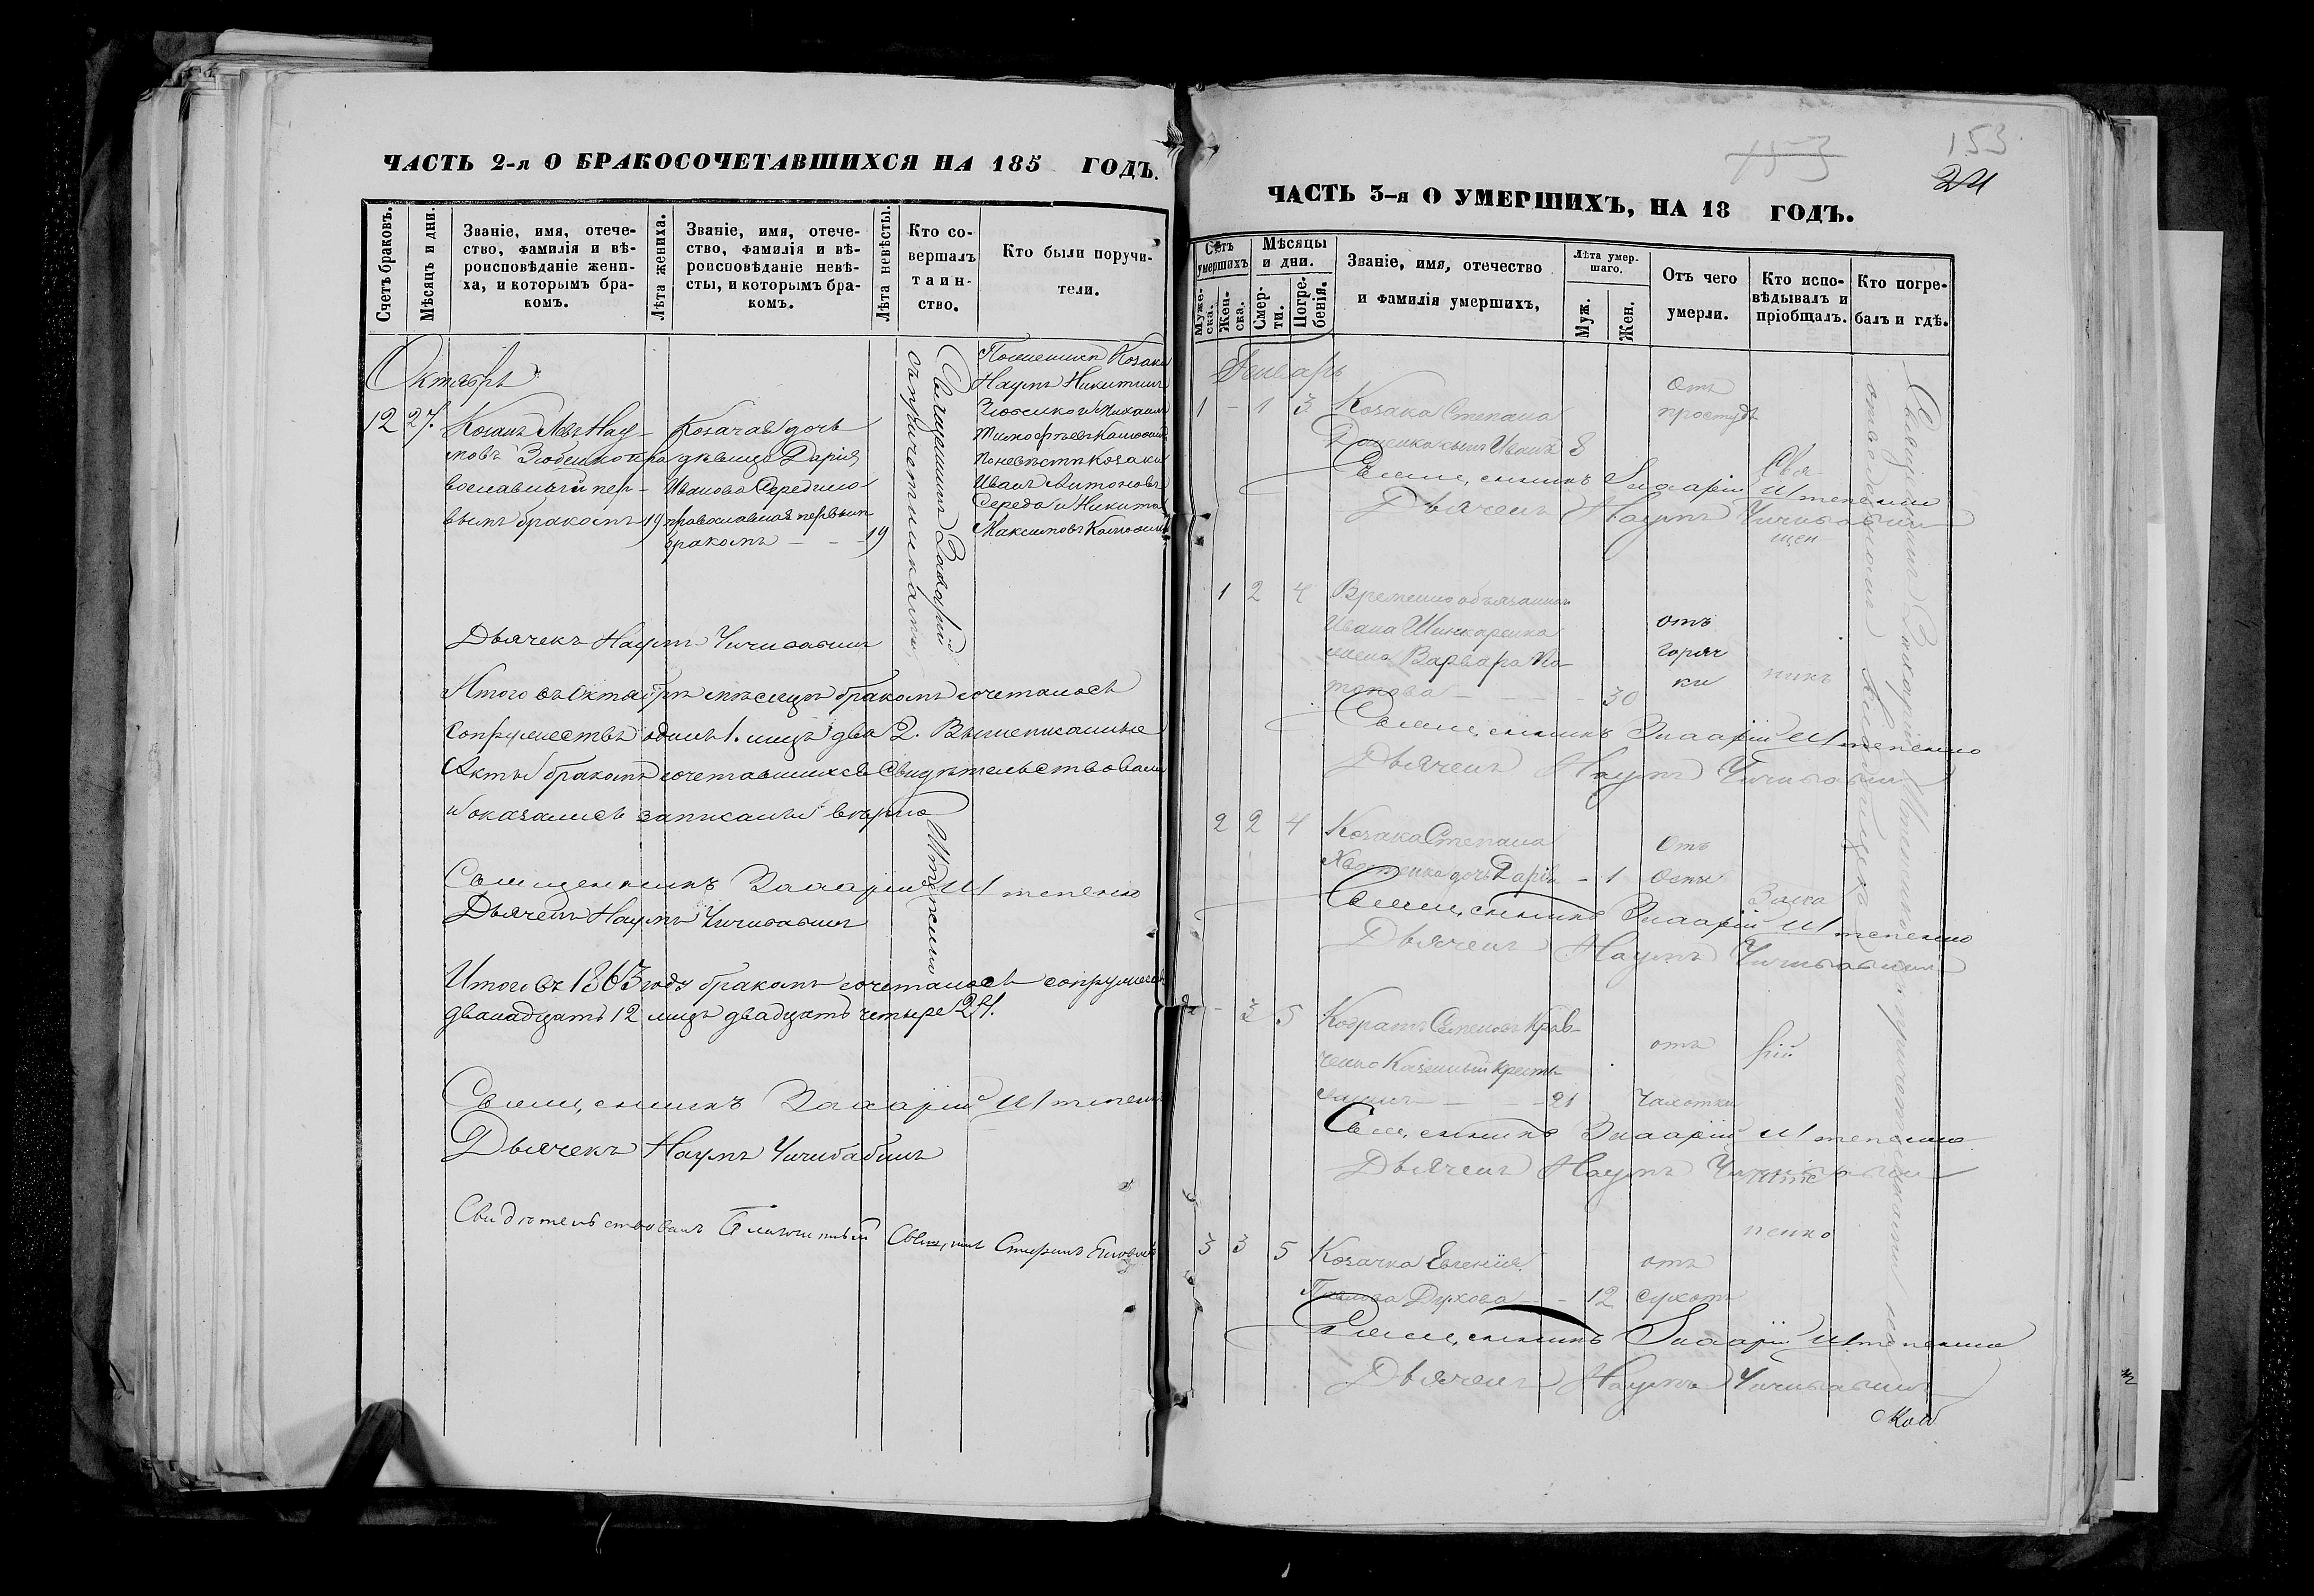 ЧАСТЬ 2-я О БРАКОСОЧЕТАВШИХСЯ НА 185 ГОДЪ.
Счетъ браковъ.
Мѣсяцъ и дни.
Званіе, имя, отече-
ство, фамилія и вѣ-
роисповѣданіе жени-
ха, и которымъ бра-
комъ.
Лѣта жениха.
Званіе, имя, отече-
ство, фамилія и вѣ-
роисповѣданіе невѣ-
сты, и которымъ бра-
комъ.
Лѣта невѣсты.
Кто со-
вершалъ
таин-
ство.
Кто были поручи-
тели.
Октябрь
12
27.
Козакъ Левъ Нау-
мовъ пра
вославный пер-
вымъ бракомъ
19
Козачая дочь
дѣвица Дарія
Иванова
православная первымъ
бракомъ
19
Священникъ Захарій Штепенко
съ причетниками
Козаки
Наумъ Никитинъ
Михаилъ
По невѣстѣ Козаки
Иванъ Антоновъ
Середа и Никита
Максимовъ
Дьячекъ Наумъ Чичибабинъ
Итого въ Октябрѣ мѣсяцѣ бракомъ сочеталось
Супружествъ одинъ 1. лицъ два 2. Вышеписанные
Акты бракомъ сочетавшихся Свидѣтельствовали
и оказались записаны вѣрно
Священникъ Захарій Штепенко
Дьячекъ Наумъ Чичибабинъ
Итого въ 1863 году бракомъ сочеталось супружествъ
дванадцать 12 лицъ двадцать четыре 24.
Священникъ Захарій Штепенко
Дьячекъ Наумъ Чичибабинъ
Свидѣтельствовалъ
153
153
24
ЧАСТЬ 3-я О УМЕРШИХЪ, НА 18 ГОДЪ.
Счетъ
умершихъ
Муже-
ска.
Жен-
ска.
Мѣсяцы
и дни.
Смер-
ти.
Погре-
бенія.
Званіе, имя, отечество
и фамилія умершихъ,
Лѣта умер-
шаго.
Муж.
Жен.
Отъ чего
умерли.
Кто испо-
вѣдывалъ и
пріобщалъ.
Кто погре-
балъ и гдѣ.
Январь
1 - 1 3
Козака Степана
сынъ Иванъ 8
Отъ
простуды
Священникъ Захарій Штепенко
Дьячекъ Наумъ Чичибабинъ
1 2 4
Временно обязаннаго
Ивана Шинкаренка
жена Варвара По-
тапова - 30
отъ
горяч
ки
Священникъ Захарій Штепенко
Дьячекъ Наумъ Чичибабинъ
2 2 4
Козака Степана
дочь Дарія - 1
Отъ
Оспы
Священникъ Захарій Штепенко
Дьячекъ Наумъ Чичибабинъ
2 - 3 5
Кондратъ Семеновъ Крав-
ченко Казенный крестья-
нинъ - 21
отъ
чахотки
Священникъ Захарій Штепенко
Дьячекъ Наумъ Чичибабинъ
3 3 5
Козачка Евгенія
Павлова Духова - 12
отъ
сухотъ
Священникъ Захарій Штепенко
Дьячекъ Наумъ Чичибабинъ
Свя
щен
никъ
Заха
рій
Ште
пенко
Священникъ Захарій Штепенко съ причетниками на
отведенномъ кладбищѣ